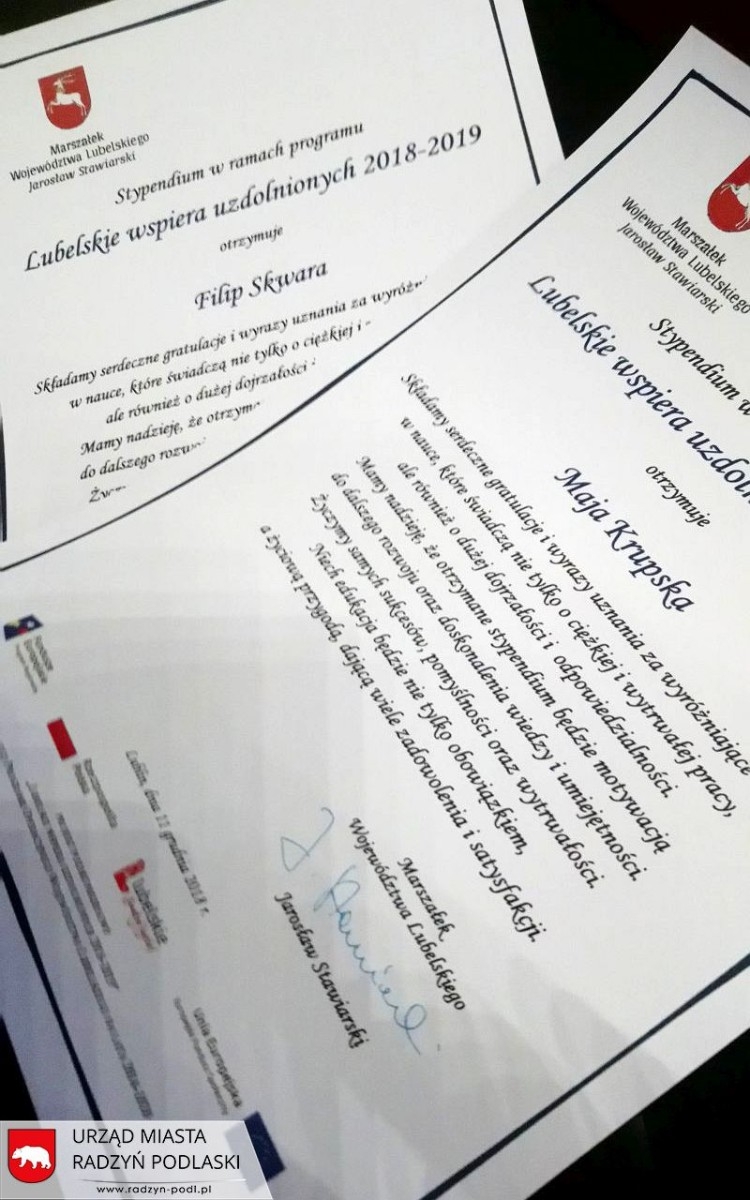 Marszałek
Województwa Lubelskiego
Jarosław Stawiarski
Stypendium w ramach programu
Lubelskie wspiera uzdolnionych 2018-2019
otrzymuje
Filip Skwara
Składamy serdeczne gratulacje i wyrazy uznania za
w nauce, które świadczą nie tylko o ciężkiej i
ale również o dużej dojrzałości
Mamy nadzieję, że
do dalszego
Marszałek
Województwa Lubelskiego
Jarosław Stawiarski
Stypendium
Lubelskie wspiera
otrzymuje
Maja Krupska
Składamy serdeczne gratulacje i wyrazy uznania za wyróżniające
w nauce, które świadczą nie tylko o ciężkiej i wytrwałej pracy,
ale również o dużej dojrzałości i odpowiedzialności.
Mamy nadzieję, że otrzymane stypendium będzie motywacją
do dalszego rozwoju oraz doskonalenia wiedzy i umiejętności.
Życzymy samych sukcesów, pomyślności oraz wytrwałości.
Niech edukacja będzie nie tylko obowiązkiem,
a życiową przygodą, dającą wiele zadowolenia i satysfakcji.
Marszałek
Województwa Lubelskiego
Jarosław Stawiarski
Lublin, dnia 11 grudnia 2018 r.
Fundusze
Europejskie
Rzeczpospolita
Polska
Lubelskie
Unia Europejska
URZĄD MIASTA
RADZYŃ PODLASKI
www.radzyn-podl.pl